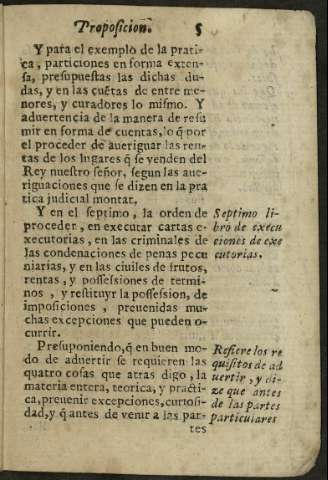 Proposicion. 5
Y para el exemplo de la prati-
ca, particiones en forma exten-
sa, presupuestas las dichas du-
das, y en las cuẽtas de entre me-
nores, y curadores lo mismo. Y
aduertencia de la manera de resu
mir en forma de cuentas, lo q̃ por
el proceder de aueriguar las ren-
tas de los lugares q̃ se venden del
Rey nuestro señor, segun las aue-
riguaciones que se dizen en la pra
tica judicial montar.
Y en el septimo, la orden de
proceder, en executar cartas e-
xecutorias, en las criminales de
las condenaciones de penas pecu
niarias, y en las ciuiles de frutos,
rentas, y possessiones de termi-
nos, y restituyr la possession, de
imposiciones, preuenidas mu-
chas excepciones que pueden o-
currir.
Septimo li-
bro de execu
ciones de exe
cutorias.
Presuponiendo, q̃ en buen mo-
do de aduertir se requieren las
quatro cosas que atras digo, la
materia entera, teorica, y practi-
ca, preuenir excepciones, curiosi-
dad, y q̃ antes de venir a las par-
tes
Refiere los re
quisitos de ad
uertir, y di-
ze que antes
de las partes
particulares